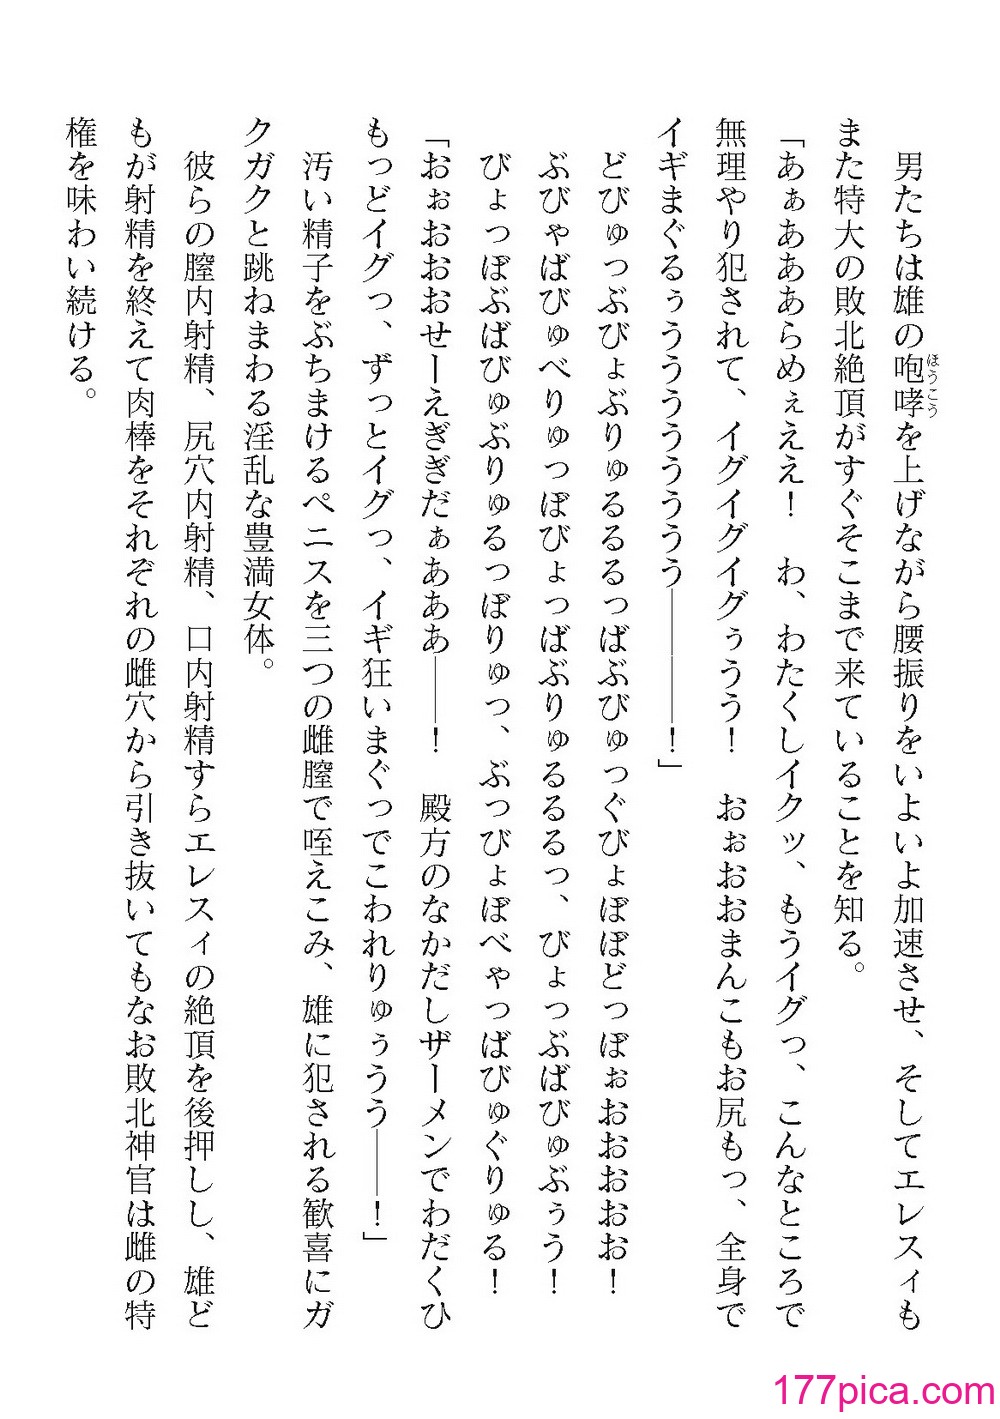 男たちは雄の咆哮を上げながら腰振りをいよいよ加速させ、そしてエレスィも
また特大の敗北絶頂がすぐそこまで来ていることを知る。
「あぁあああらめぇええ！　わ、わたくしイクッ、もうイグっ、こんなところで
無理やり犯されて、イグイグイグぅうう！　おぉおおまんこもお尻もっ、全身で
イギまぐるぅうううううううう――――！」
どびゅっぶびょぶりゅるるるっばぶびゅっぐびょぼぼどっぼぉおおおおお！
ぶびゃばびゅべりゅっぼびょっばぶりゅるるるっ、びょっぶばびゅぶぅう！
びょっぼぶばびゅぶりゅるっぼりゅっ、ぶっびょぼべゃっばびゅぐりゅる！
「おぉおおおせーえぎぎだぁあああ――！　殿方のなかだしザーメンでわだくひ
もっどイグっ、ずっとイグっ、イギ狂いまぐっでこわれりゅぅうう――！」
汚い精子をぶちまけるペニスを三つの雌膣で咥えこみ、雄に犯される歓喜にガ
クガクと跳ねまわる淫乱な豊満女体。
彼らの膣内射精、尻穴内射精、口内射精すらエレスィの絶頂を後押しし、雄ど
もが射精を終えて肉棒をそれぞれの雌穴から引き抜いてもなお敗北神官は雌の特
権を味わい続ける。
ほうこう
177pica.com